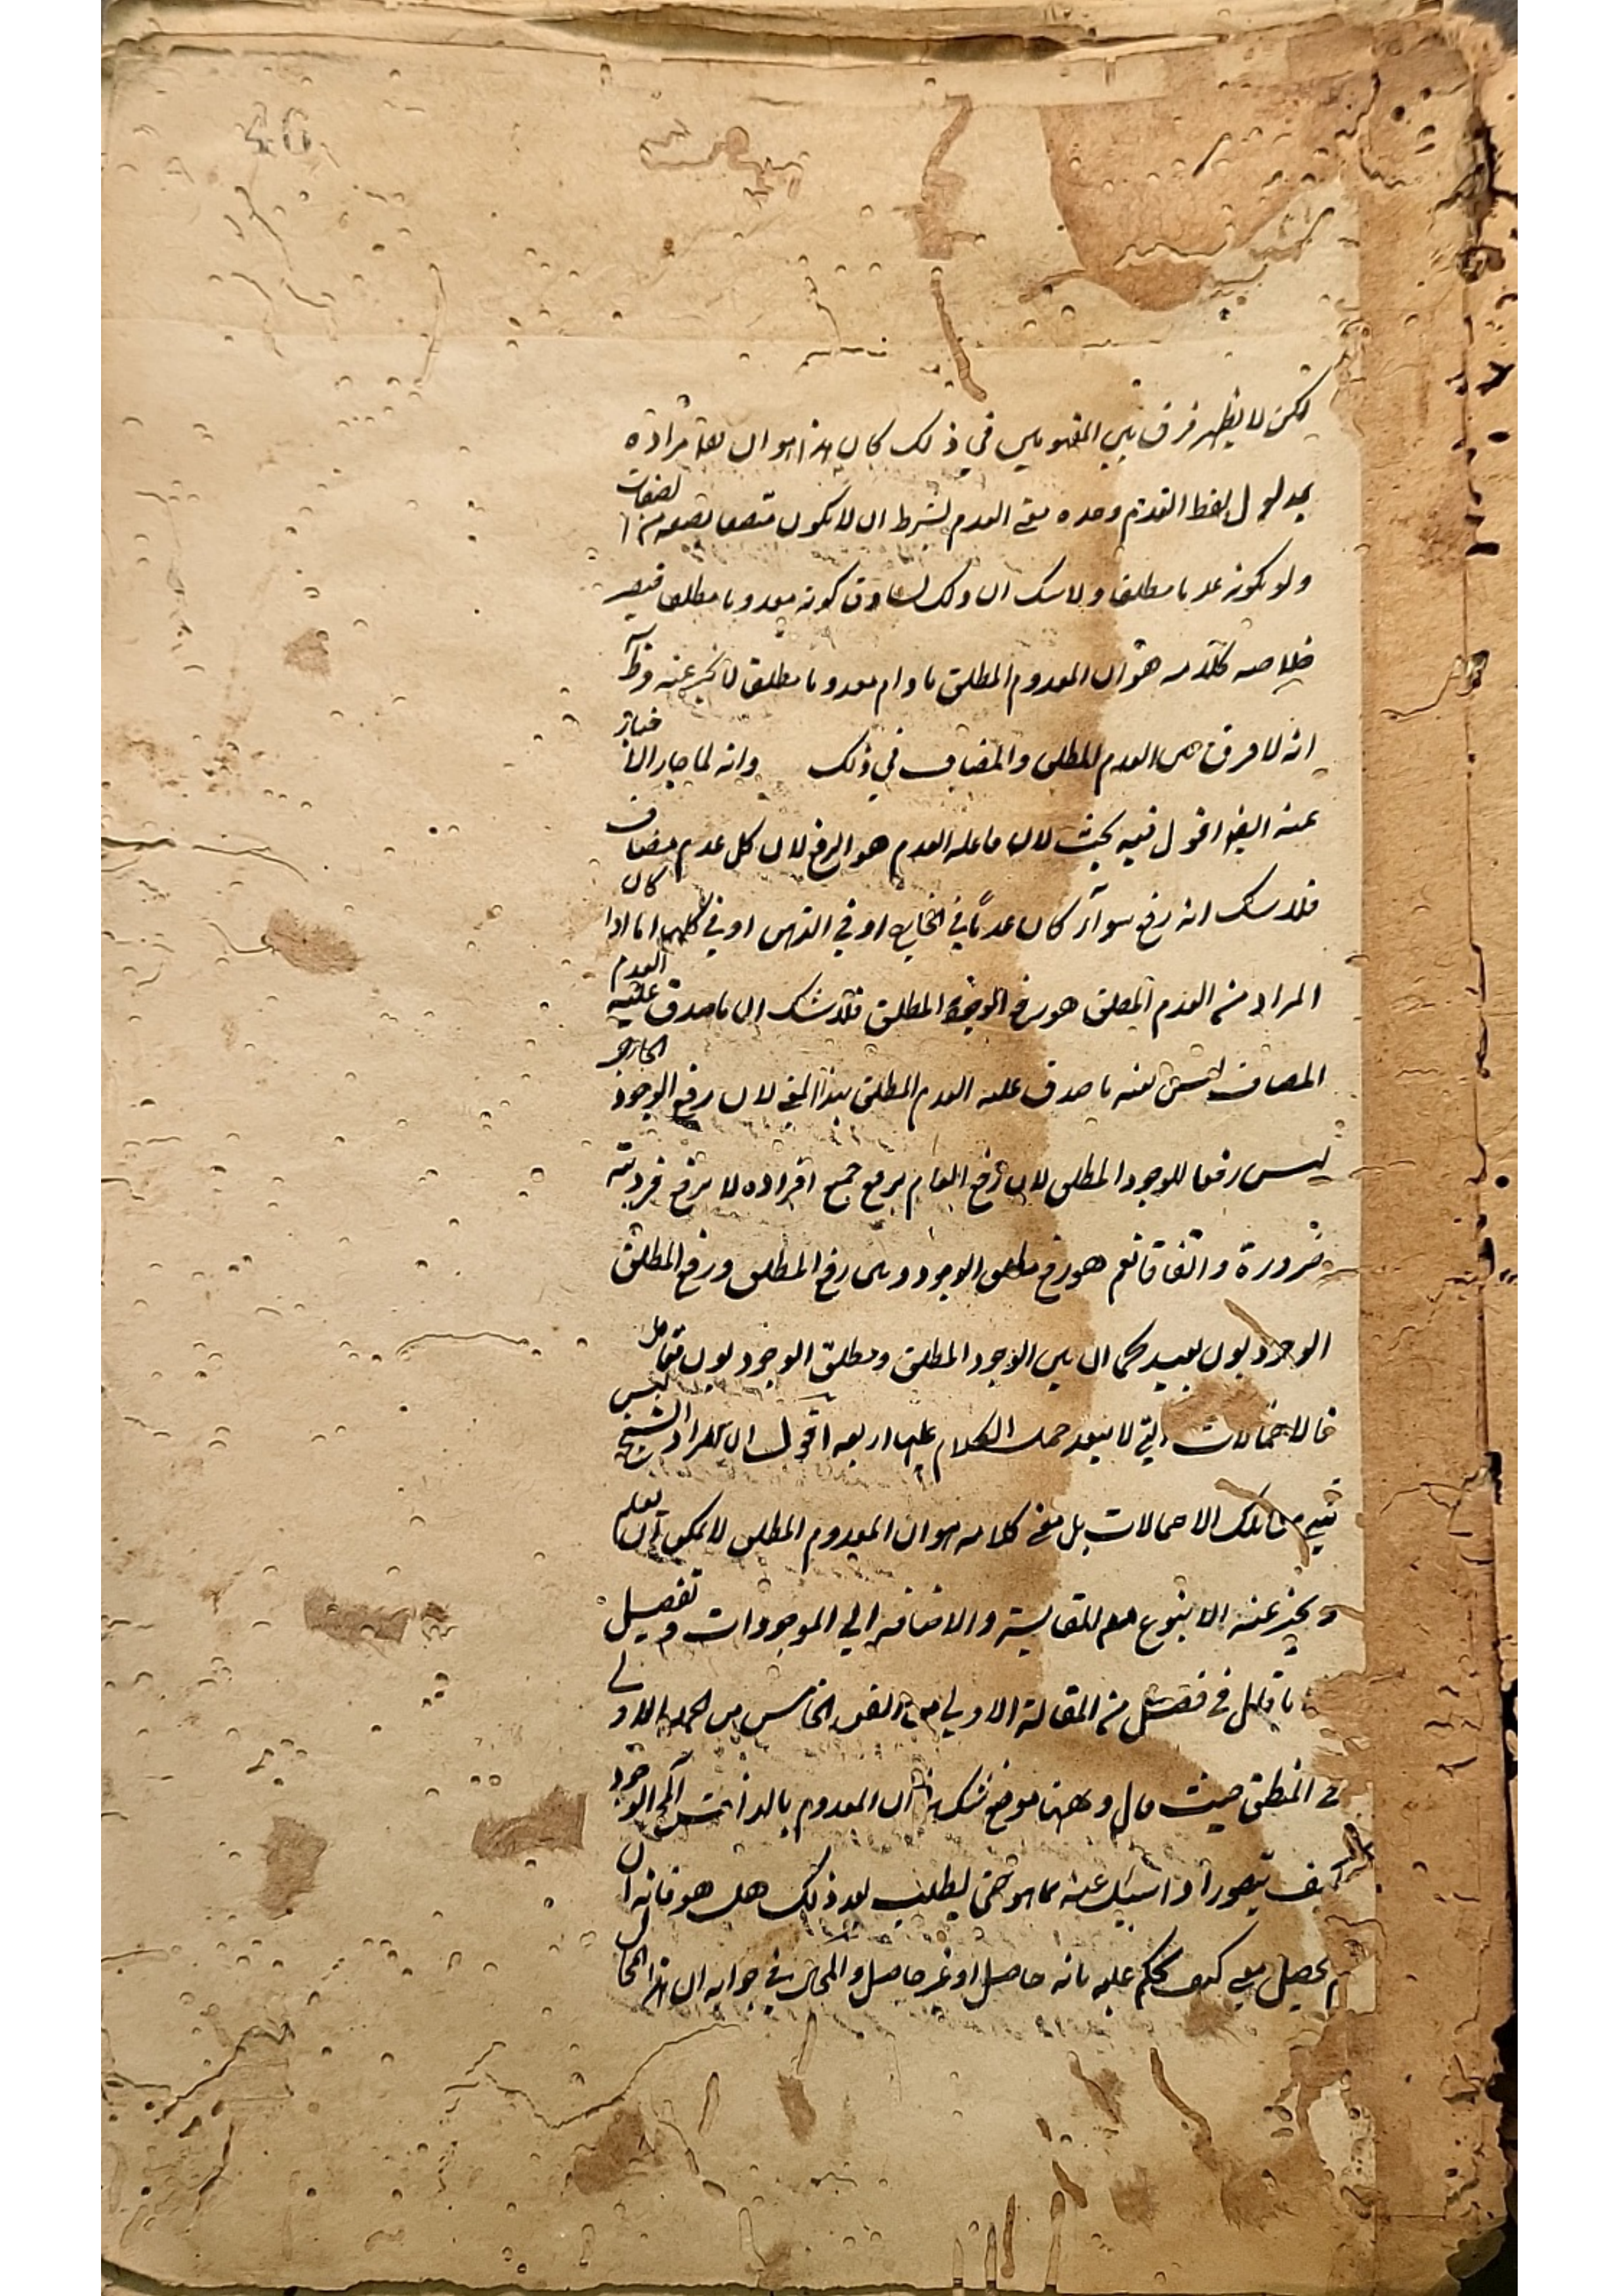 لكن لا يظهر فرق بين المفهومين في ذلك كان هذا هو ان لعل مراده
بمدلول لفظ العدم وحده معنى العدم بشرط ان لا يكون متصفا بصفة من الصفات
ولو بكونه عدما مطلقا ولا شك ان ذلك يساوق كونه معدوما مطلقا فيصير
خلاصة كلامه هو ان المعدوم المطلق ما دام معدوما مطلقا لا يخبر عنه
انه لا فرق بين العدم المطلق والمضاف في ذلك وانه لما جاز الاخبار
عنه ايضا اقول فيه بحث لان العدم هو الرفع لان كل عدم مضاف
فلا شك انه رفع سواء كان عدما في الخارج او في الذهن او في كليهما اما اذا كان
المراد من العدم المطلق هو رفع الوجود المطلق فلا شك ان ما صدق عليه العدم
المضاف ليس بعينه ما صدق عليه العدم المطلق بهذا المعنى لان رفع الوجود الخارجي
ليس رفعا للوجود المطلق لان رفع العام برفع جميع افراده لا برفع فرد منه
ضرورة واتفاقا نعم هو رفع مطلق الوجود وبين رفع المطلق ورفع المطلق
الوجود بون بعيد كما ان بين الوجود المطلق ومطلق الوجود بون فتامل
فالاحتمالات التي لا يبعد حمل الكلام عليها اربعة اقول ان مراد الشيخ ليس
شيء من تلك الاحتمالات بل معنى كلامه هو ان المعدوم المطلق لا يمكن ان يعلم
ويخبر عنه الا بنوع من المقايسة والاضافة الى الموجودات وتفصيل
ما قال في فصل من المقالة الاولى من الفن الخامس من الجملة الاولى
في المنطق حيث قال وههنا موضع شك في ان المعدوم بالذات المحال الوجود
كيف يتصور اذا سئل عنه ما هو حتى يطلب بعد ذلك هل هو فانه ان
لم يحصل معنى كيف يحكم عليه بانه حاصل او غير حاصل والمحال في جوابه ان هذا المحال